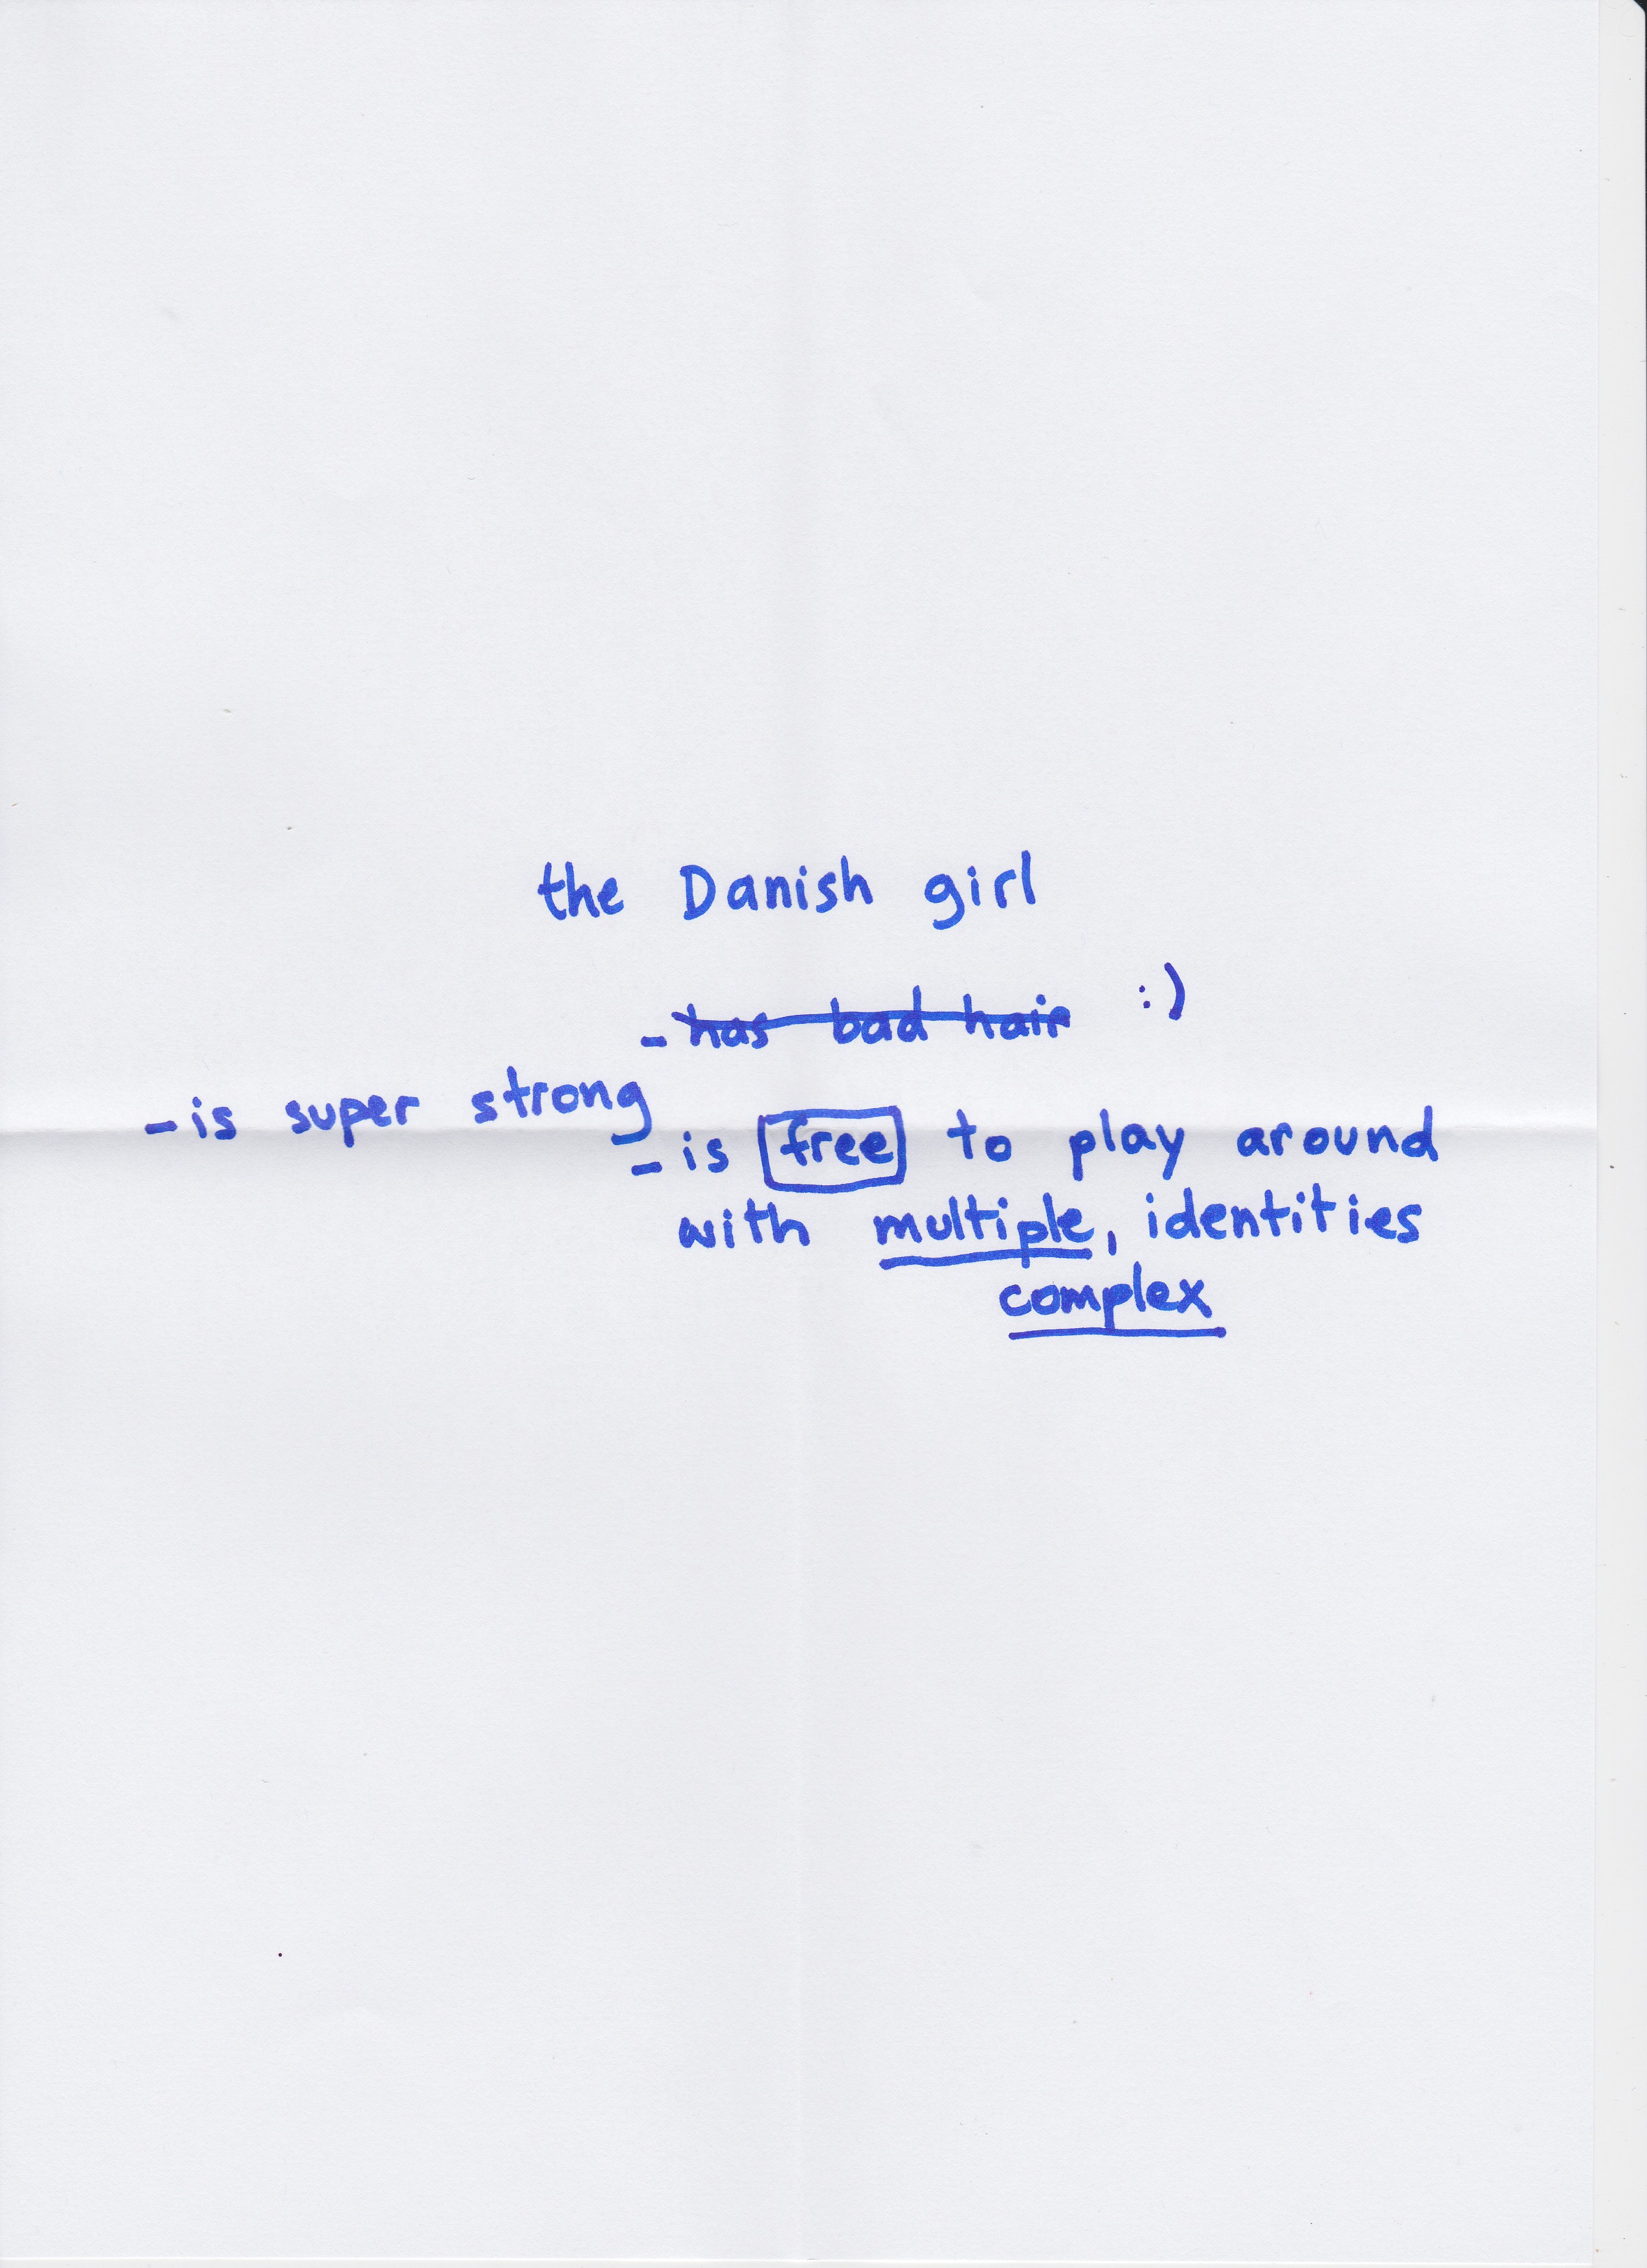 the Danish girl
- has bad hair :)
- is super strong
- is free to play around
with multiple, identities
complex